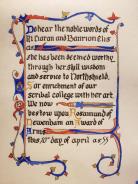 Do hear the noble words of
Ciaran and
she has been deemed worthy
through her skill wisdom
and service to Northshield.
For enrichment of our
scribal college with her art.
We now
bestow upon Rosamund of
an Award of
Arms
This 10th day of April as